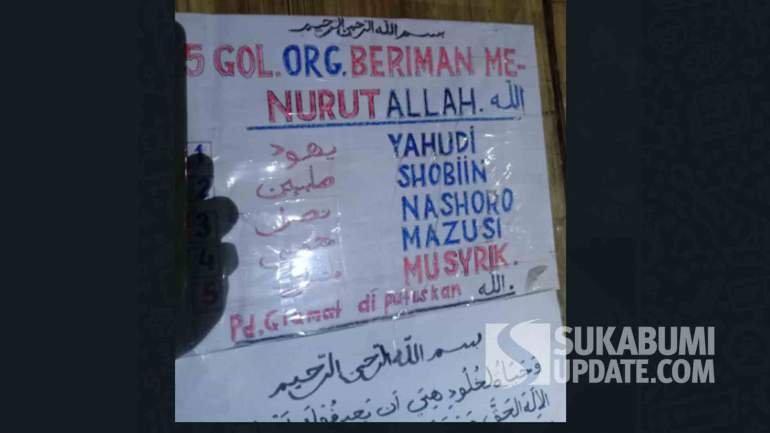 بسم الله الرحمن الرحيم
5 GOL. ORG. BERIMAN ME-
NURUT ALLAH. الله
1 يهود YAHUDI
2 صابين SHOBIIN
3 نصر NASHORO
4 MAZUSI
5 MUSYRIK.
Pd. Giamat di putuskan الله.
بسم الله الرحمن الرحيم
SUKABUMI
UPDATE.COM